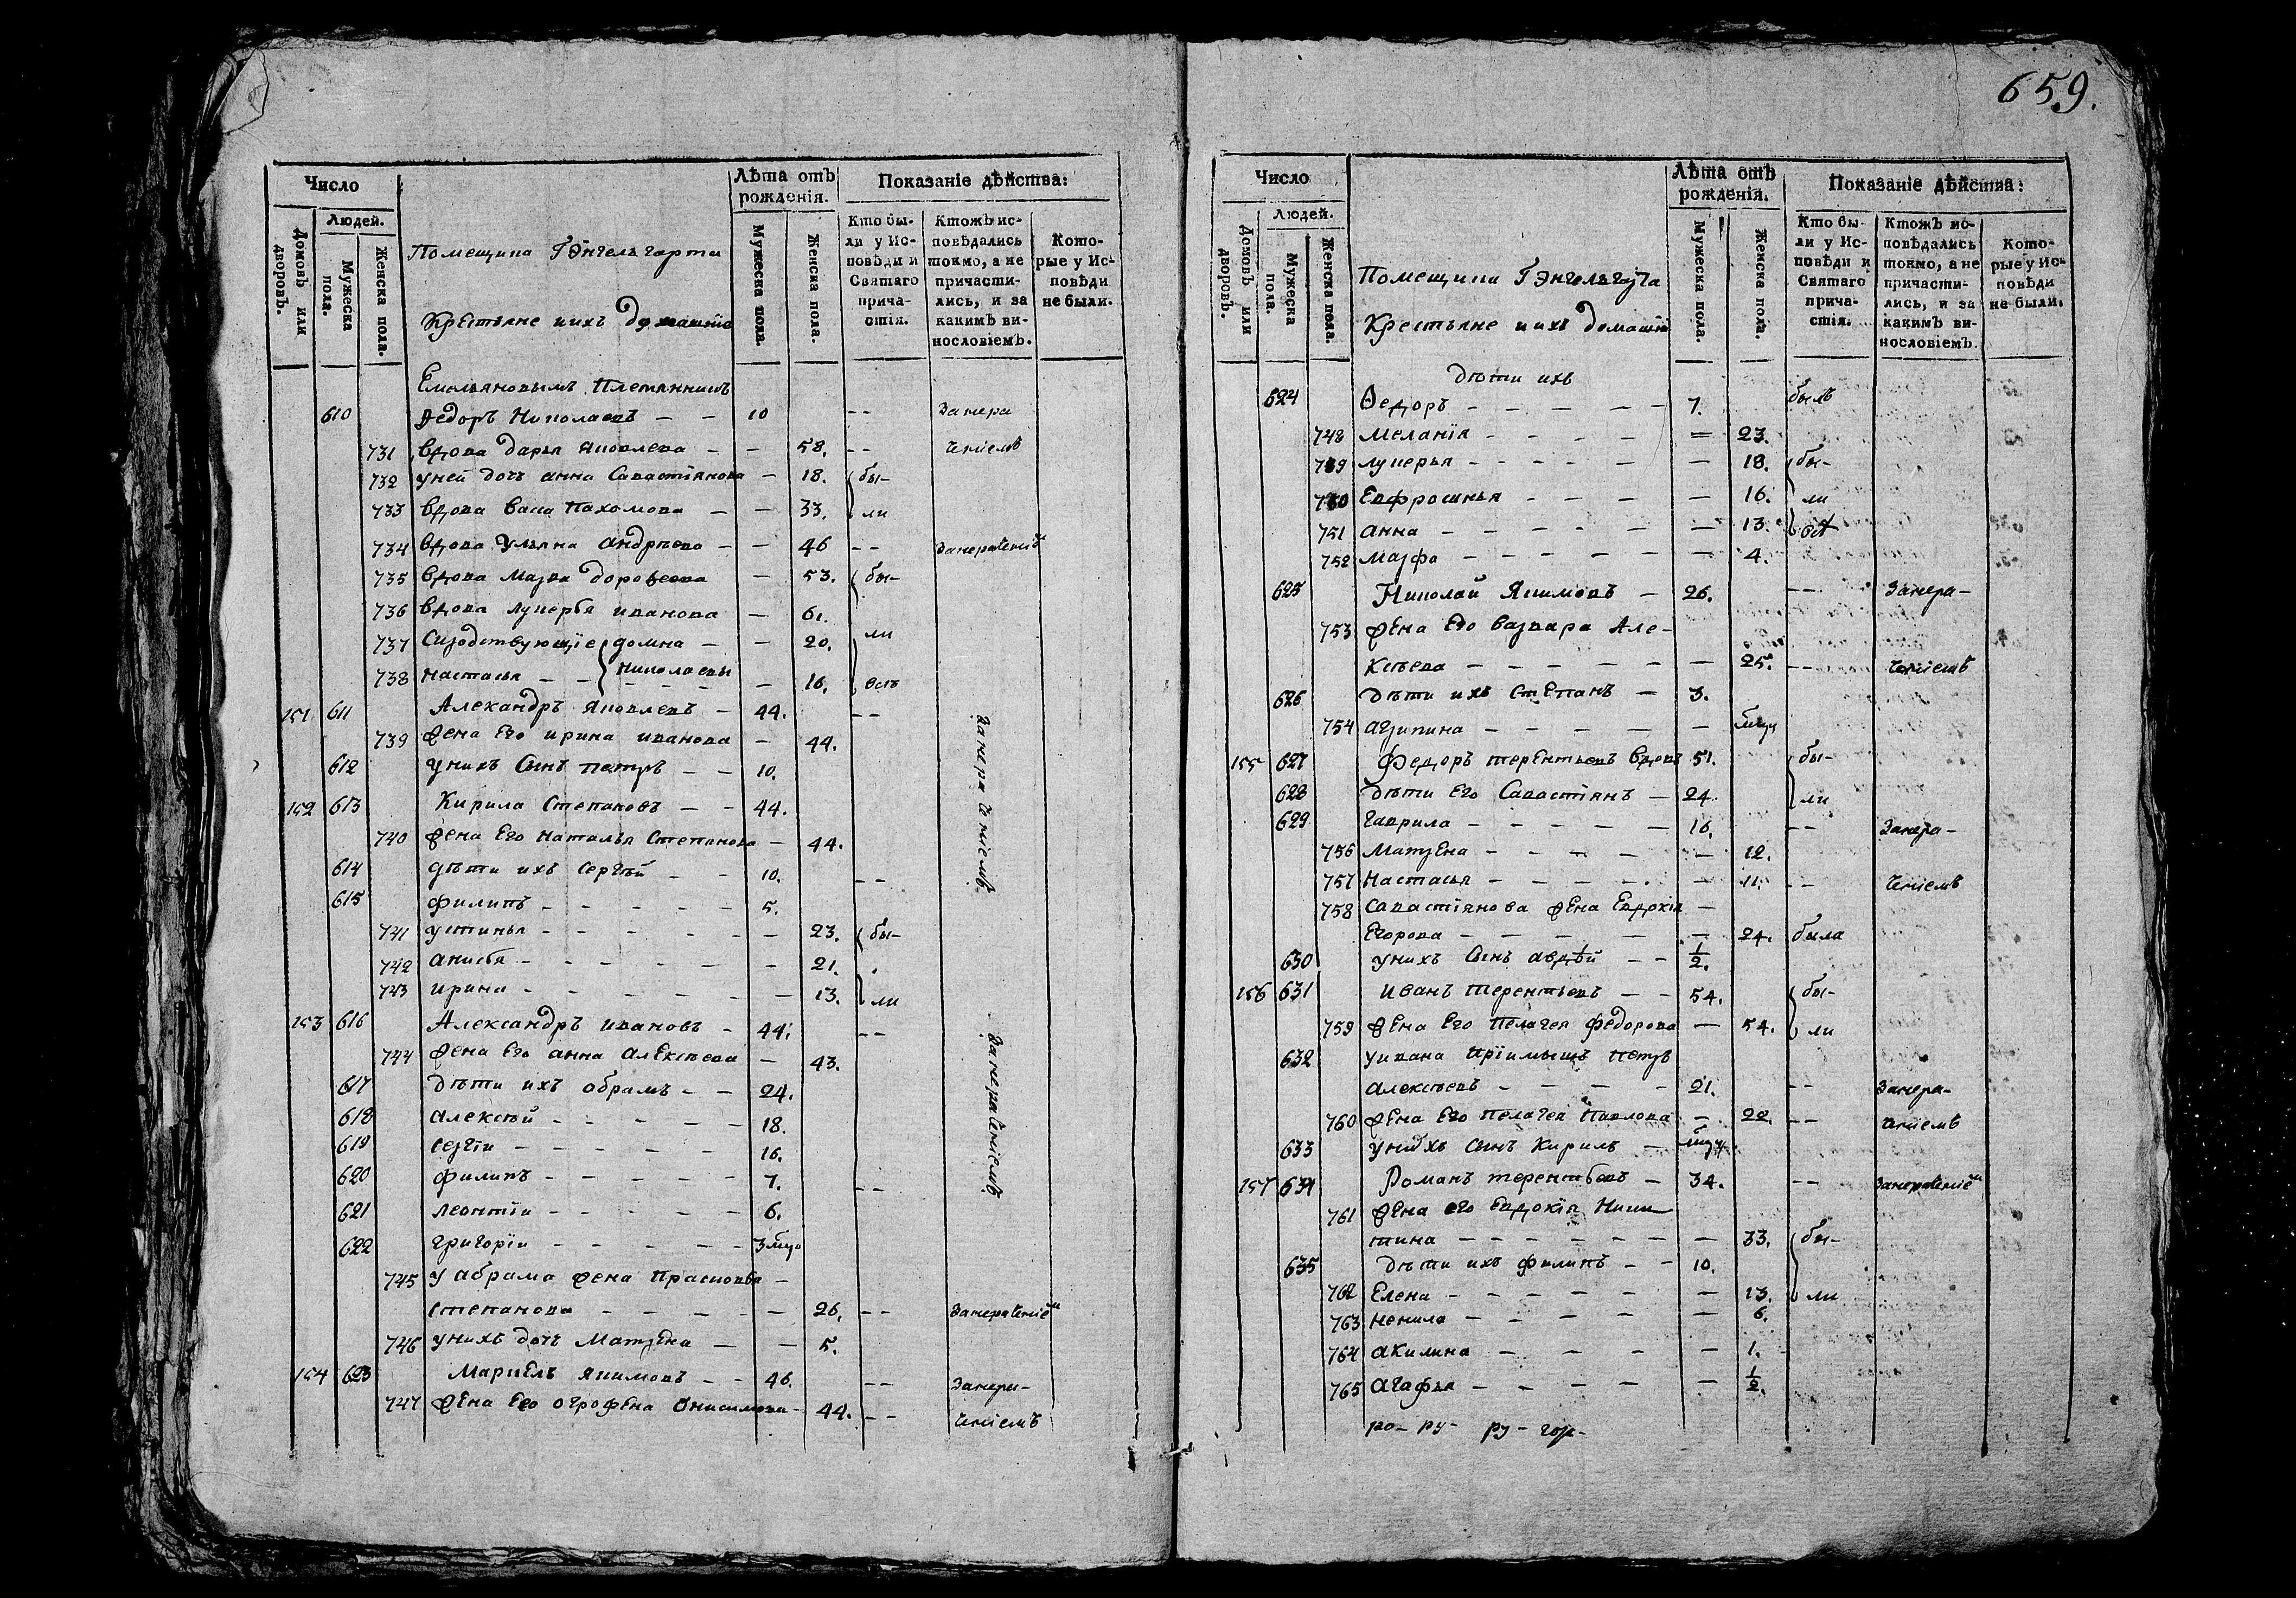 Число
Людей.
Домовъ или дворовъ.
Мужеска пола.
Женска пола.
Лѣта отъ рожденія.
Мужеска пола.
Женска пола.
Показаніе дѣйства:
Кто бы-
ли у Ис-
повѣди и
Святаго
прича-
стія.
Ктожъ ис-
повѣдались
токмо, а не
причасти-
лись, и за
какимъ ви-
нословіемъ.
Кото-
рые у Ис-
повѣди
не были.
Помещика Гэнгельгарта
Крестьяне иихъ домашніе
Емельяновымъ племянникъ
610 Федоръ Николаевъ — — 10 -- Занера
731 вдова дарья Яковлева — — 58. -- ченіемъ
732 уней дочь анна Савастіянова — 18. бы-
733 вдова Васса Пахомова — — 33. ли
734 вдова Ульяна андрѣева — — 46 -- Занераченіемъ
735 вдова Марѳа дорофеева — 53. бы-
736 вдова лукерья иванова — 61.
737 Сизодствующіе домна — — 20. ли
738 Настасья — — Николаевы — 16. всѣ
151 611 Александръ Яковлевъ — 44. --
739 жена Его ирина иванова — 44.
612 унихъ Сынъ петръ — — 10.
Занераченіемъ
152 613 Кирила Степановъ — — 44.
740 жена Его Наталья Степанова — 44.
614 дѣти ихъ Сергѣй — — 10. --
615 филипъ - - - - - 5.
741 устинья - - - - - — 23. бы-
742 анисья - - - - - - 21.
743 ирина - - - - - - 13. ли
153 616 Александръ ивановъ — 44. --
744 жена Его анна алЕксѣева — 43.
617 дѣти ихъ обрамъ — — 24.
Занераченіемъ
618 алексѣй - - - - - 18.
619 сергіи - - - - - 16.
620 филипъ - - - - - 7. --
621 леонтіи - - - - - 6.
622 григоріи - - - - - 3
745 у абрама жена прасковья —
степанова — — — — — 26. -- Занераченіемъ
746 унихъ дочь МатрЕна — — 5.
154 623 МаркЕлъ якимовъ — — 46. -- Занера-
747 жена Его огрофЕна Онисимова — 44. -- ченіемъ
659.
Число
Людей.
Домовъ или дворовъ.
Мужеска пола.
Женска пола.
Лѣта отъ рожденія.
Мужеска пола.
Женска пола.
Показаніе дѣйства:
Кто бы-
ли у Ис-
повѣди и
Святаго
прича-
стія.
Ктожъ ис-
повѣдались
токмо, а не
причасти-
лись, и за
какимъ ви-
нословіемъ.
Кото-
рые у Ис-
повѣди
не были.
Помещика Гэнгельгарта
Крестьяне иихъ домашніе
дѣти ихъ
624 Ѳедоръ — — — — — 7. былъ
748 Меланія - - - - = 23.
749 лукерья - - - - - — 18. бы-
750 Евфросинья - - - — 16. ли
751 анна — — — — — — 13. всѣ
752 марфа — — — — — — 4.
625 Николай Якимовъ — 26. -- Занера-
753 жена Его варвара Але-
ксѣева — — — — — — 25. -- ченіемъ
626 дѣти ихъ стЕпанъ — 3.
754 агрипина — — — — —
155 627 Федоръ терЕнтьевъ вдовъ 51. бы-
628 дѣти Его Савастіянъ — 24. ли
629 гаврила — — — — — 16. -- Занера-
756 МатрЕна - - - - — 12.
757 Настасья - - - - - — 11. -- ченіемъ
758 савастіянова жЕна Евдокія —
Егорова — — — — — — 24. была
630 унихъ Сынъ авдѣй — — 1/2.
156 631 иванъ терентьевъ — — 54. бы-
759 жЕна Его пелагея федорова — 54. ли
632 уивана пріимышъ петръ
алексѣевъ — — — — 21. -- Занера-
760 жЕна Его пелагея павлова — 22. -- ченіемъ
633 унихъ Сынъ Кирилъ —
157 634 Романъ терентьевъ — 34. -- Занераченіемъ
761 жЕна его Евдокія Ники
тина — — — — — — — 33. бы-
635 дѣти ихъ филипъ — — 10.
762 Елена — — — — — — 13. ли
763 Ненила — — — — — 6.
764 акилина — — — — — 1.
765 агафья — — — — — 1/2.
ро- ру- ру- гор-